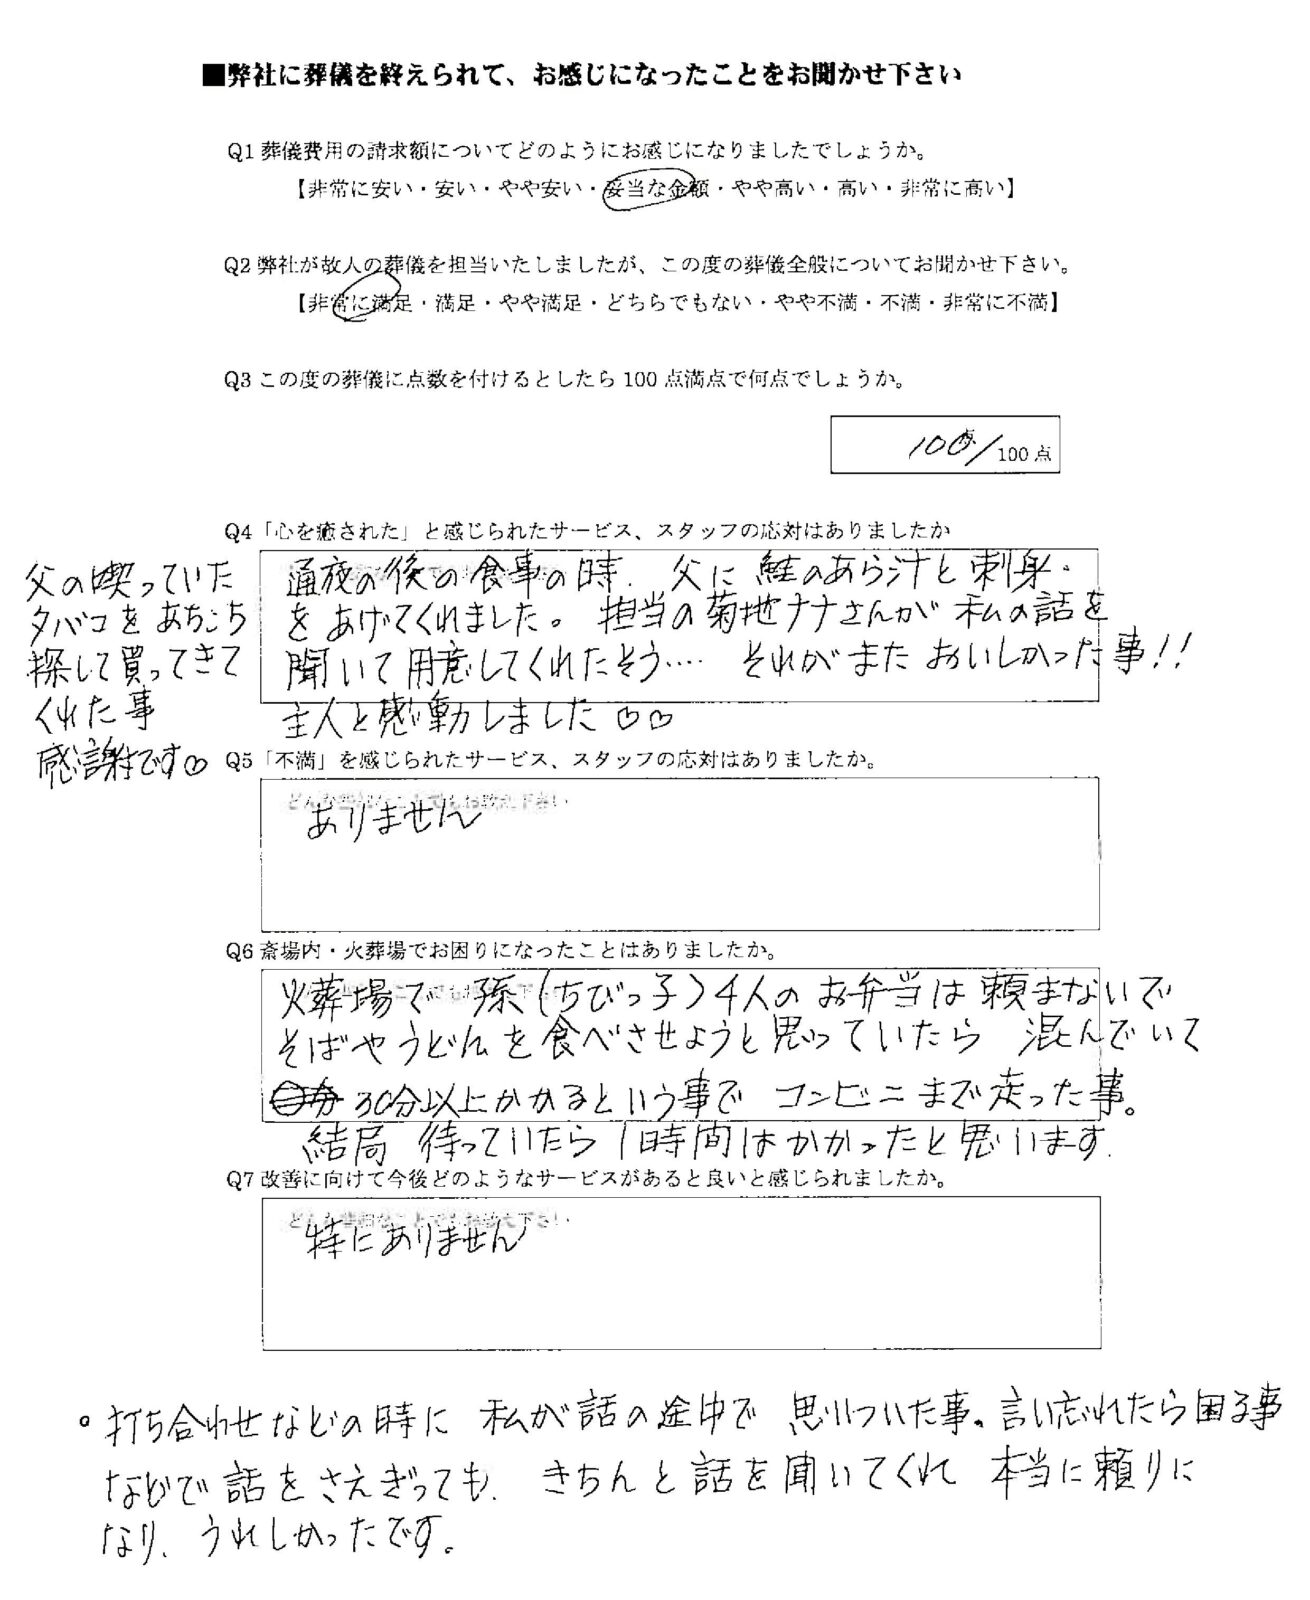 ■弊社に葬儀を終えられて、お感じになったことをお聞かせ下さい
Q1 葬儀費用の請求額についてどのようにお感じになりましたでしょうか。
【非常に安い・安い・やや安い・妥当な金額・やや高い・高い・非常に高い】
Q2 弊社が故人の葬儀を担当いたしましたが、この度の葬儀全般についてお聞かせ下さい。
【非常に満足・満足・やや満足・どちらでもない・やや不満・不満・非常に不満】
Q3 この度の葬儀に点数を付けるとしたら 100 点満点で何点でしょうか。
100点/100 点
Q4「心を癒された」と感じられたサービス、スタッフの応対はありましたか
通夜の後の食事の時、父に 鮭のあら汁と刺身・
をあげてくれました。担当の菊地ナナさんが 私の話を
聞いて用意してくれたそう‥‥ それがまた おいしかった事!!
主人と感動しました♡♡
父の喫っていた
タバコをあちこち
探して買ってきて
くれた事
感謝です♡
Q5「不満」を感じられたサービス、スタッフの応対はありましたか。
ありません
Q6 斎場内・火葬場でお困りになったことはありましたか。
火葬場で 孫(ちびっ子)4人の お弁当は 頼まないで
そばやうどんを食べさせようと思っていたら 混んでいて
30分以上かかるという事で コンビニまで走った事。
結局 待っていたら 1時間はかかったと思います.
Q7 改善に向けて今後どのようなサービスがあると良いと感じられましたか。
どんな些細なことでもお教え下さい
特にありません
。打ち合わせなどの時に 私が話の途中で 思いついた事。言い忘れたら困る事
などで話をさえぎっても、きちんと話を聞いてくれ 本当に頼りに
なり、うれしかったです。